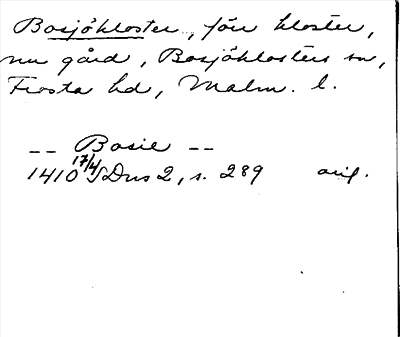 Bosjökloster, förr kloster,
nu gård, Bosjöklosters sn,
Frosta hd, Malm. l.
-- Bosie --
1410 17/4 SDns 2, s. 289 orig.